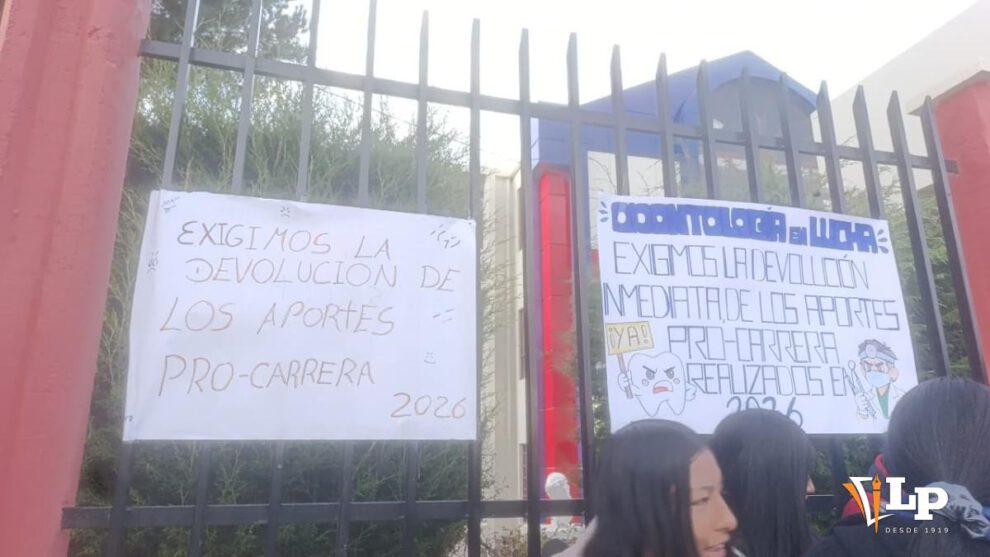 EXIGIMOS LA
DEVOLUCIÓN DE
LOS APORTES
PRO-CARRERA
2026
ODONTOLOGÍA EN LUCHA
EXIGIMOS LA DEVOLUCIÓN
INMEDIATA DE LOS APORTES
¡YA!
PRO-CARRERA
REALIZADOS EN
2026
LP
DESDE 1919